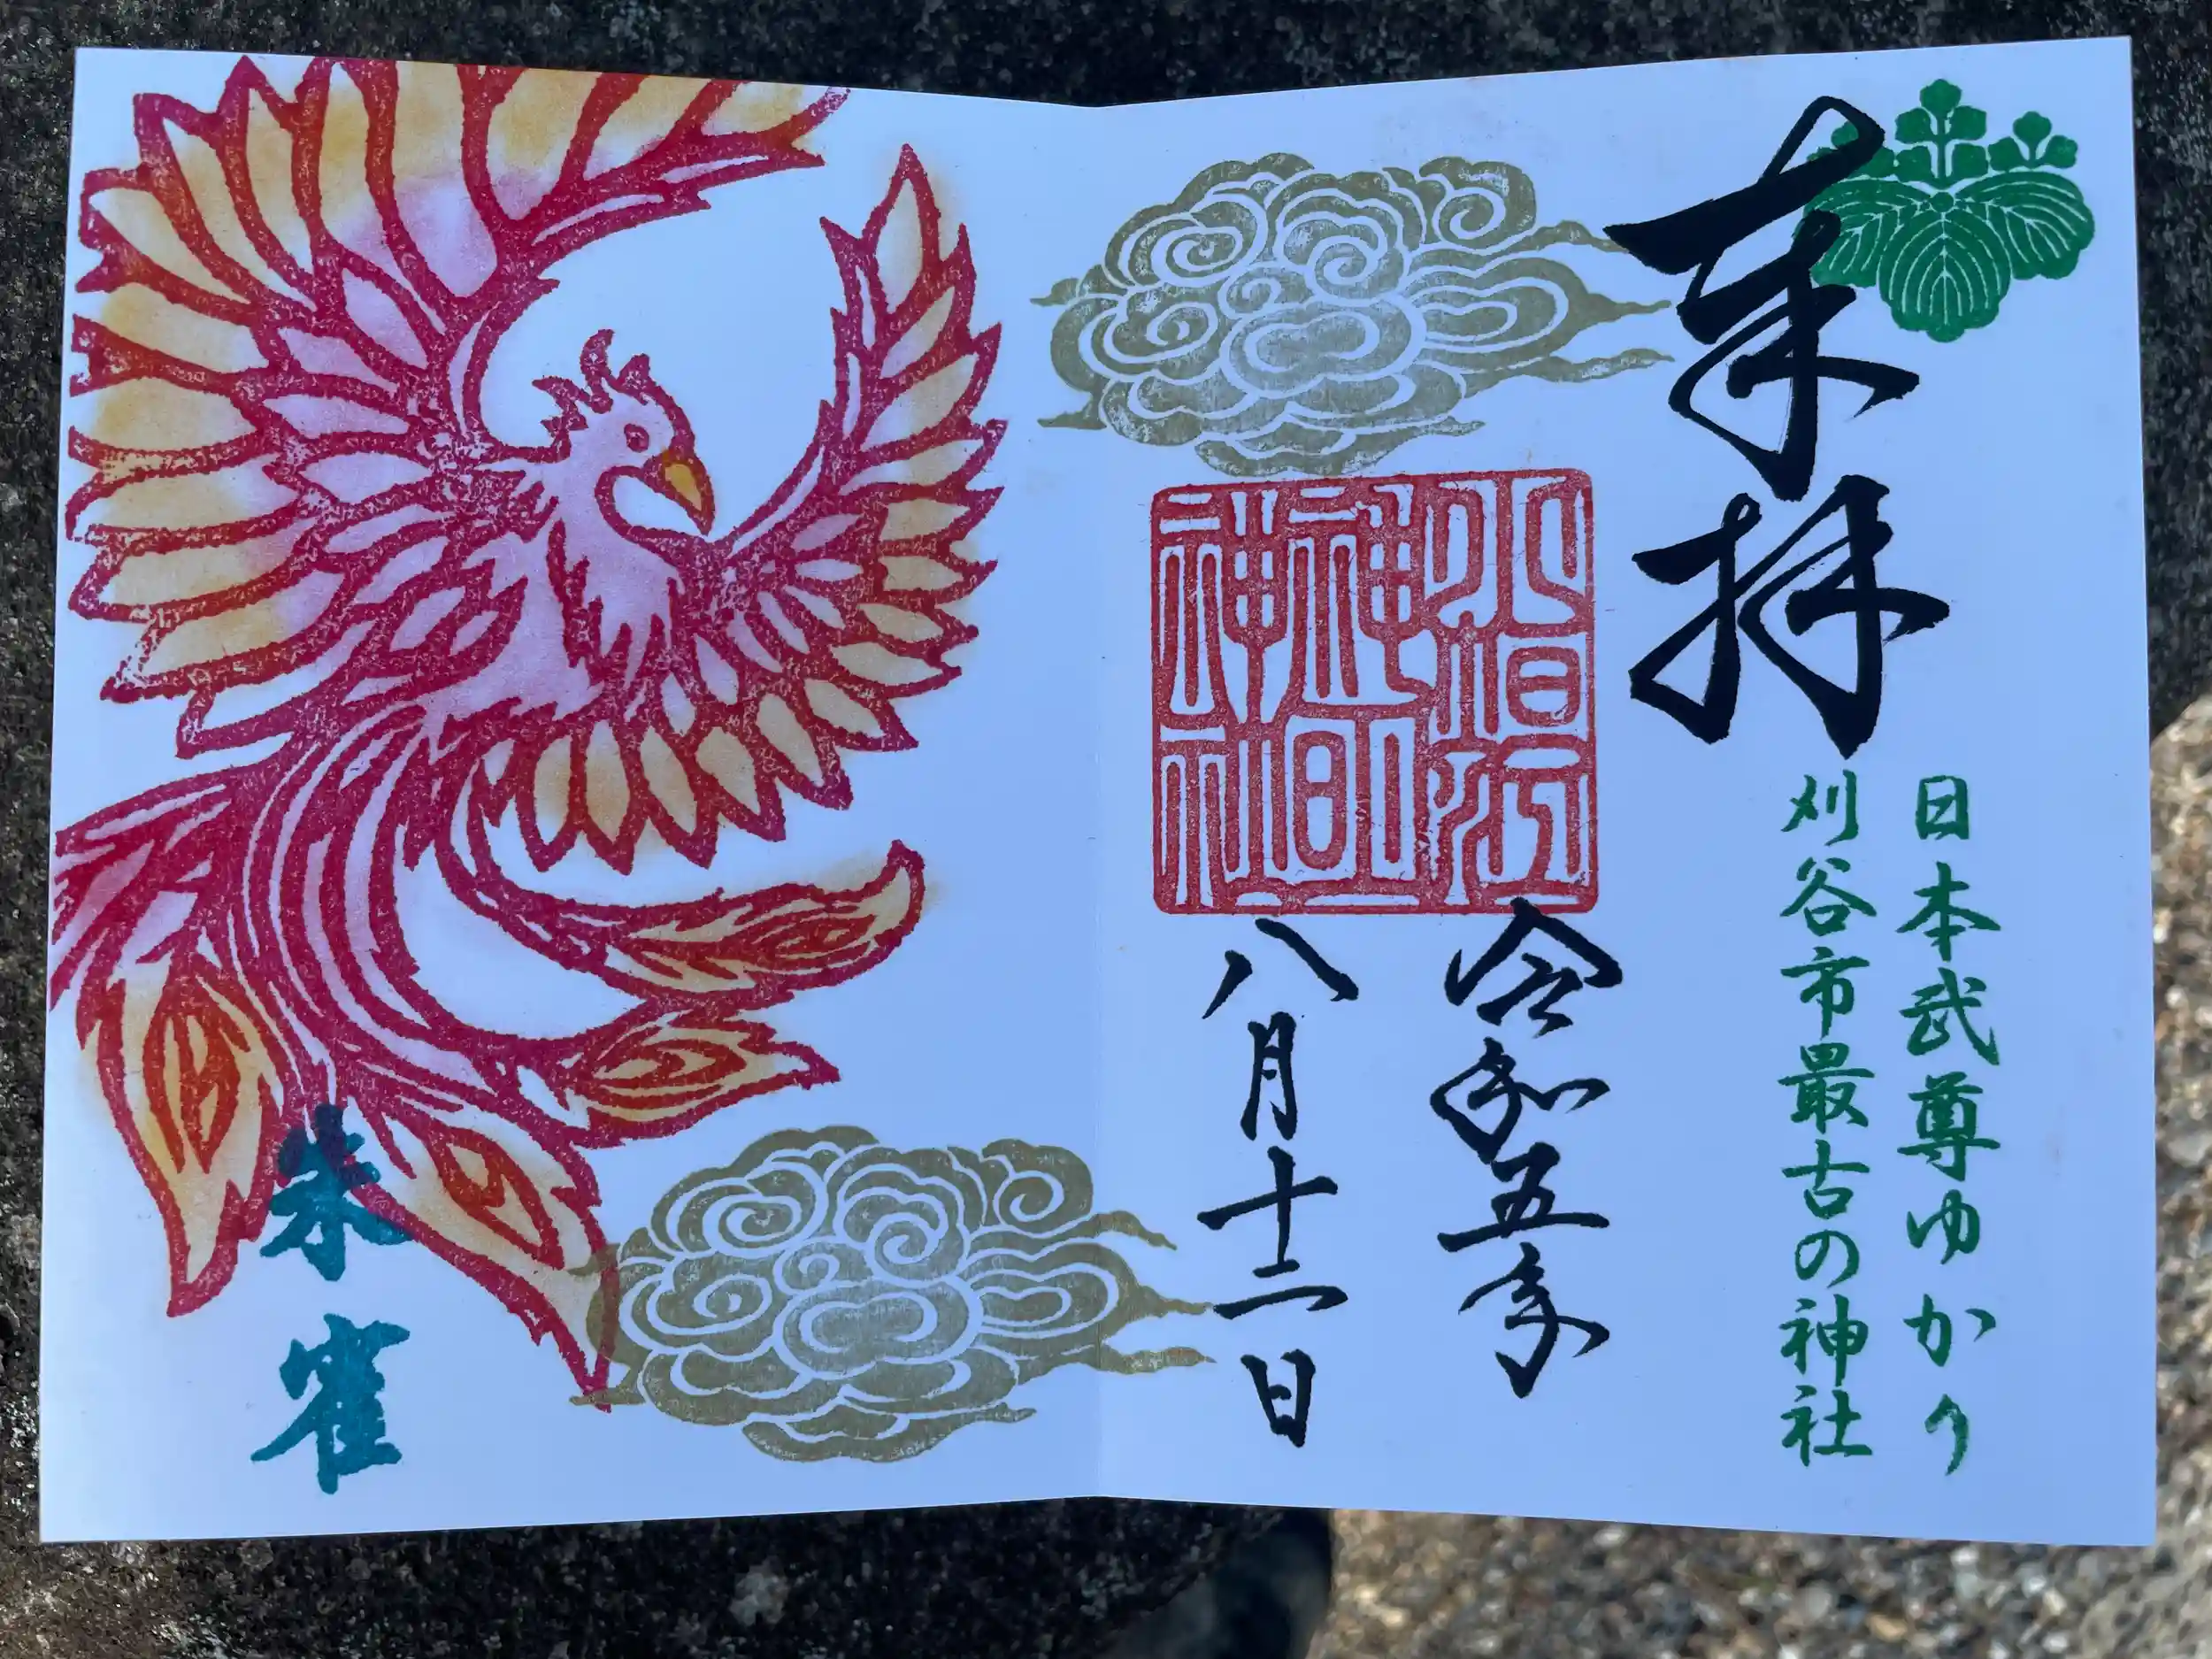 奉拝
日本武尊ゆかり
刈谷市最古の神社
令和五年
八月十二日
朱雀